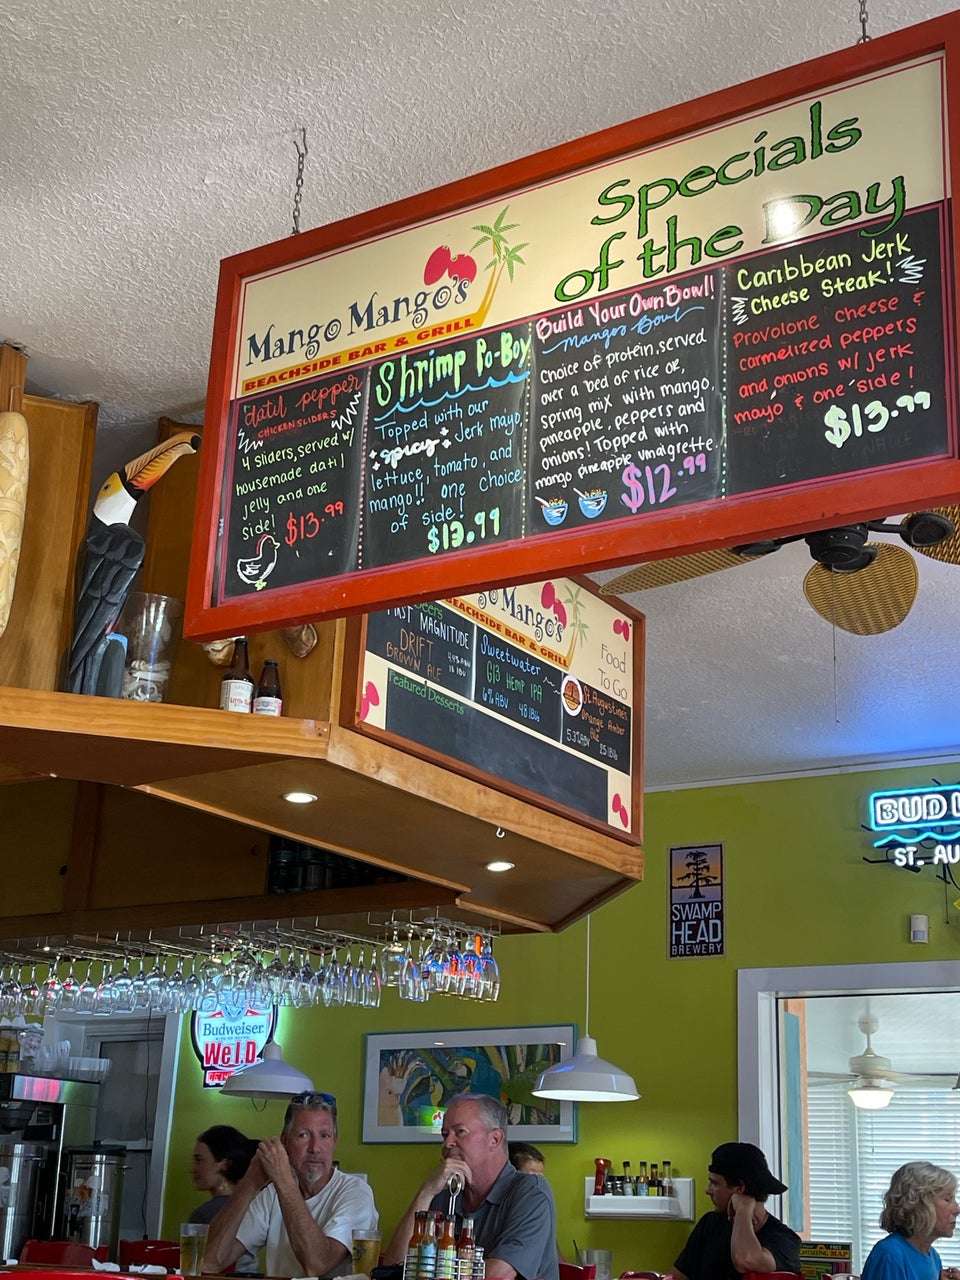 Specials
of the Day
Mango Mango's
BEACHSIDE BAR & GRILL
datil pepper
CHICKEN SLIDERS
4 sliders, served w/
housemade datil
jelly and one
side! $13.99
Shrimp Po-Boy
Topped with our
spicy Jerk mayo,
lettuce, tomato, and
mango!! one choice
of side!
$13.99
Build Your Own Bowl!
Mangos Bowl
Choice of protein, served
over a bed of rice or,
spring mix with mango,
pineapple, peppers and
onions! Topped with
mango pineapple vinaigrette.
$12.99
Caribbean Jerk
Cheese Steak!
Provolone cheese &
carmelized peppers
and onions w/ jerk
mayo & one side!
$13.99
go Mango's
BEACHSIDE BAR & GRILL
Food
To Go
Beers
FIRST MAGNITUDE
DRIFT
BROWN ALE
Sweetwater
G13 HEMP IPA
6% ABV 48 IBU
St. Augustine's
Orange Amber
Ale
5.3% ABV 25 IBU
Featured Desserts
BUD
ST. AU
SWAMP
HEAD
BREWERY
Budweiser
We I.D.